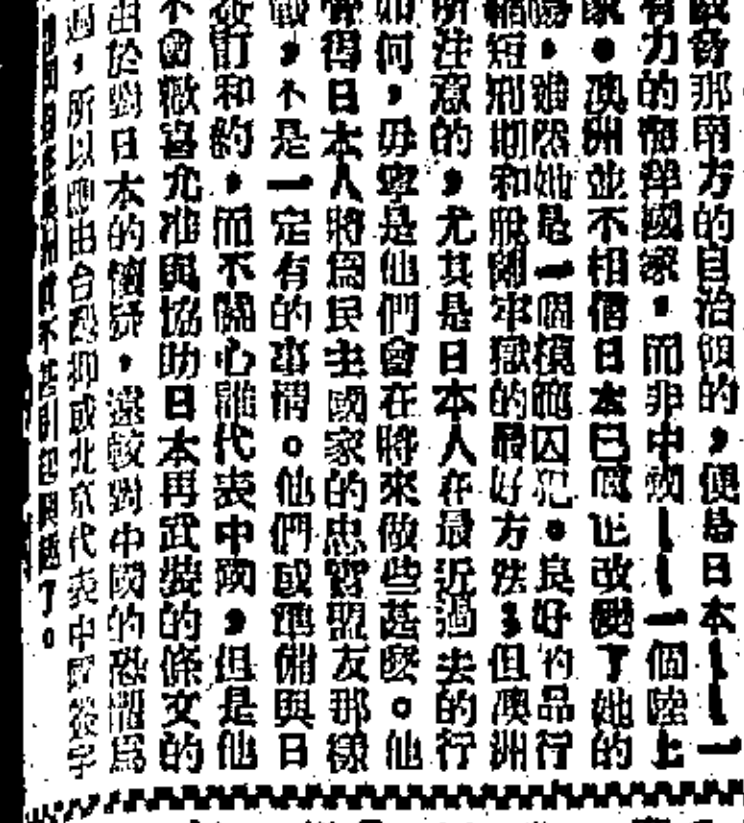 威脅那南方的自治領的，便是日本——一
有力的海洋國家，而非中國——一個陸上
家。澳洲並不相信日本已眞正改變了她的
雖然她是一個模範囚犯。良好的品行
縮短刑期和脫離牢獄的最好方法；但澳洲
所注意的，尤其是日本人在最近過去的行
如何，毋寧是他們會在將來做些甚麼。他
覺得日本人將爲民主國家的忠實盟友那樣
，不是一定有的事情。他們或準備與日
簽訂和約，而不關心誰代表中國，但是他
不會歡喜允准與協助日本再武裝的條文的
由於對日本的懷疑，遠較對中國的恐懼爲
過，所以應由台灣抑或北京代表中國簽字
澳洲實不甚引起興趣了。